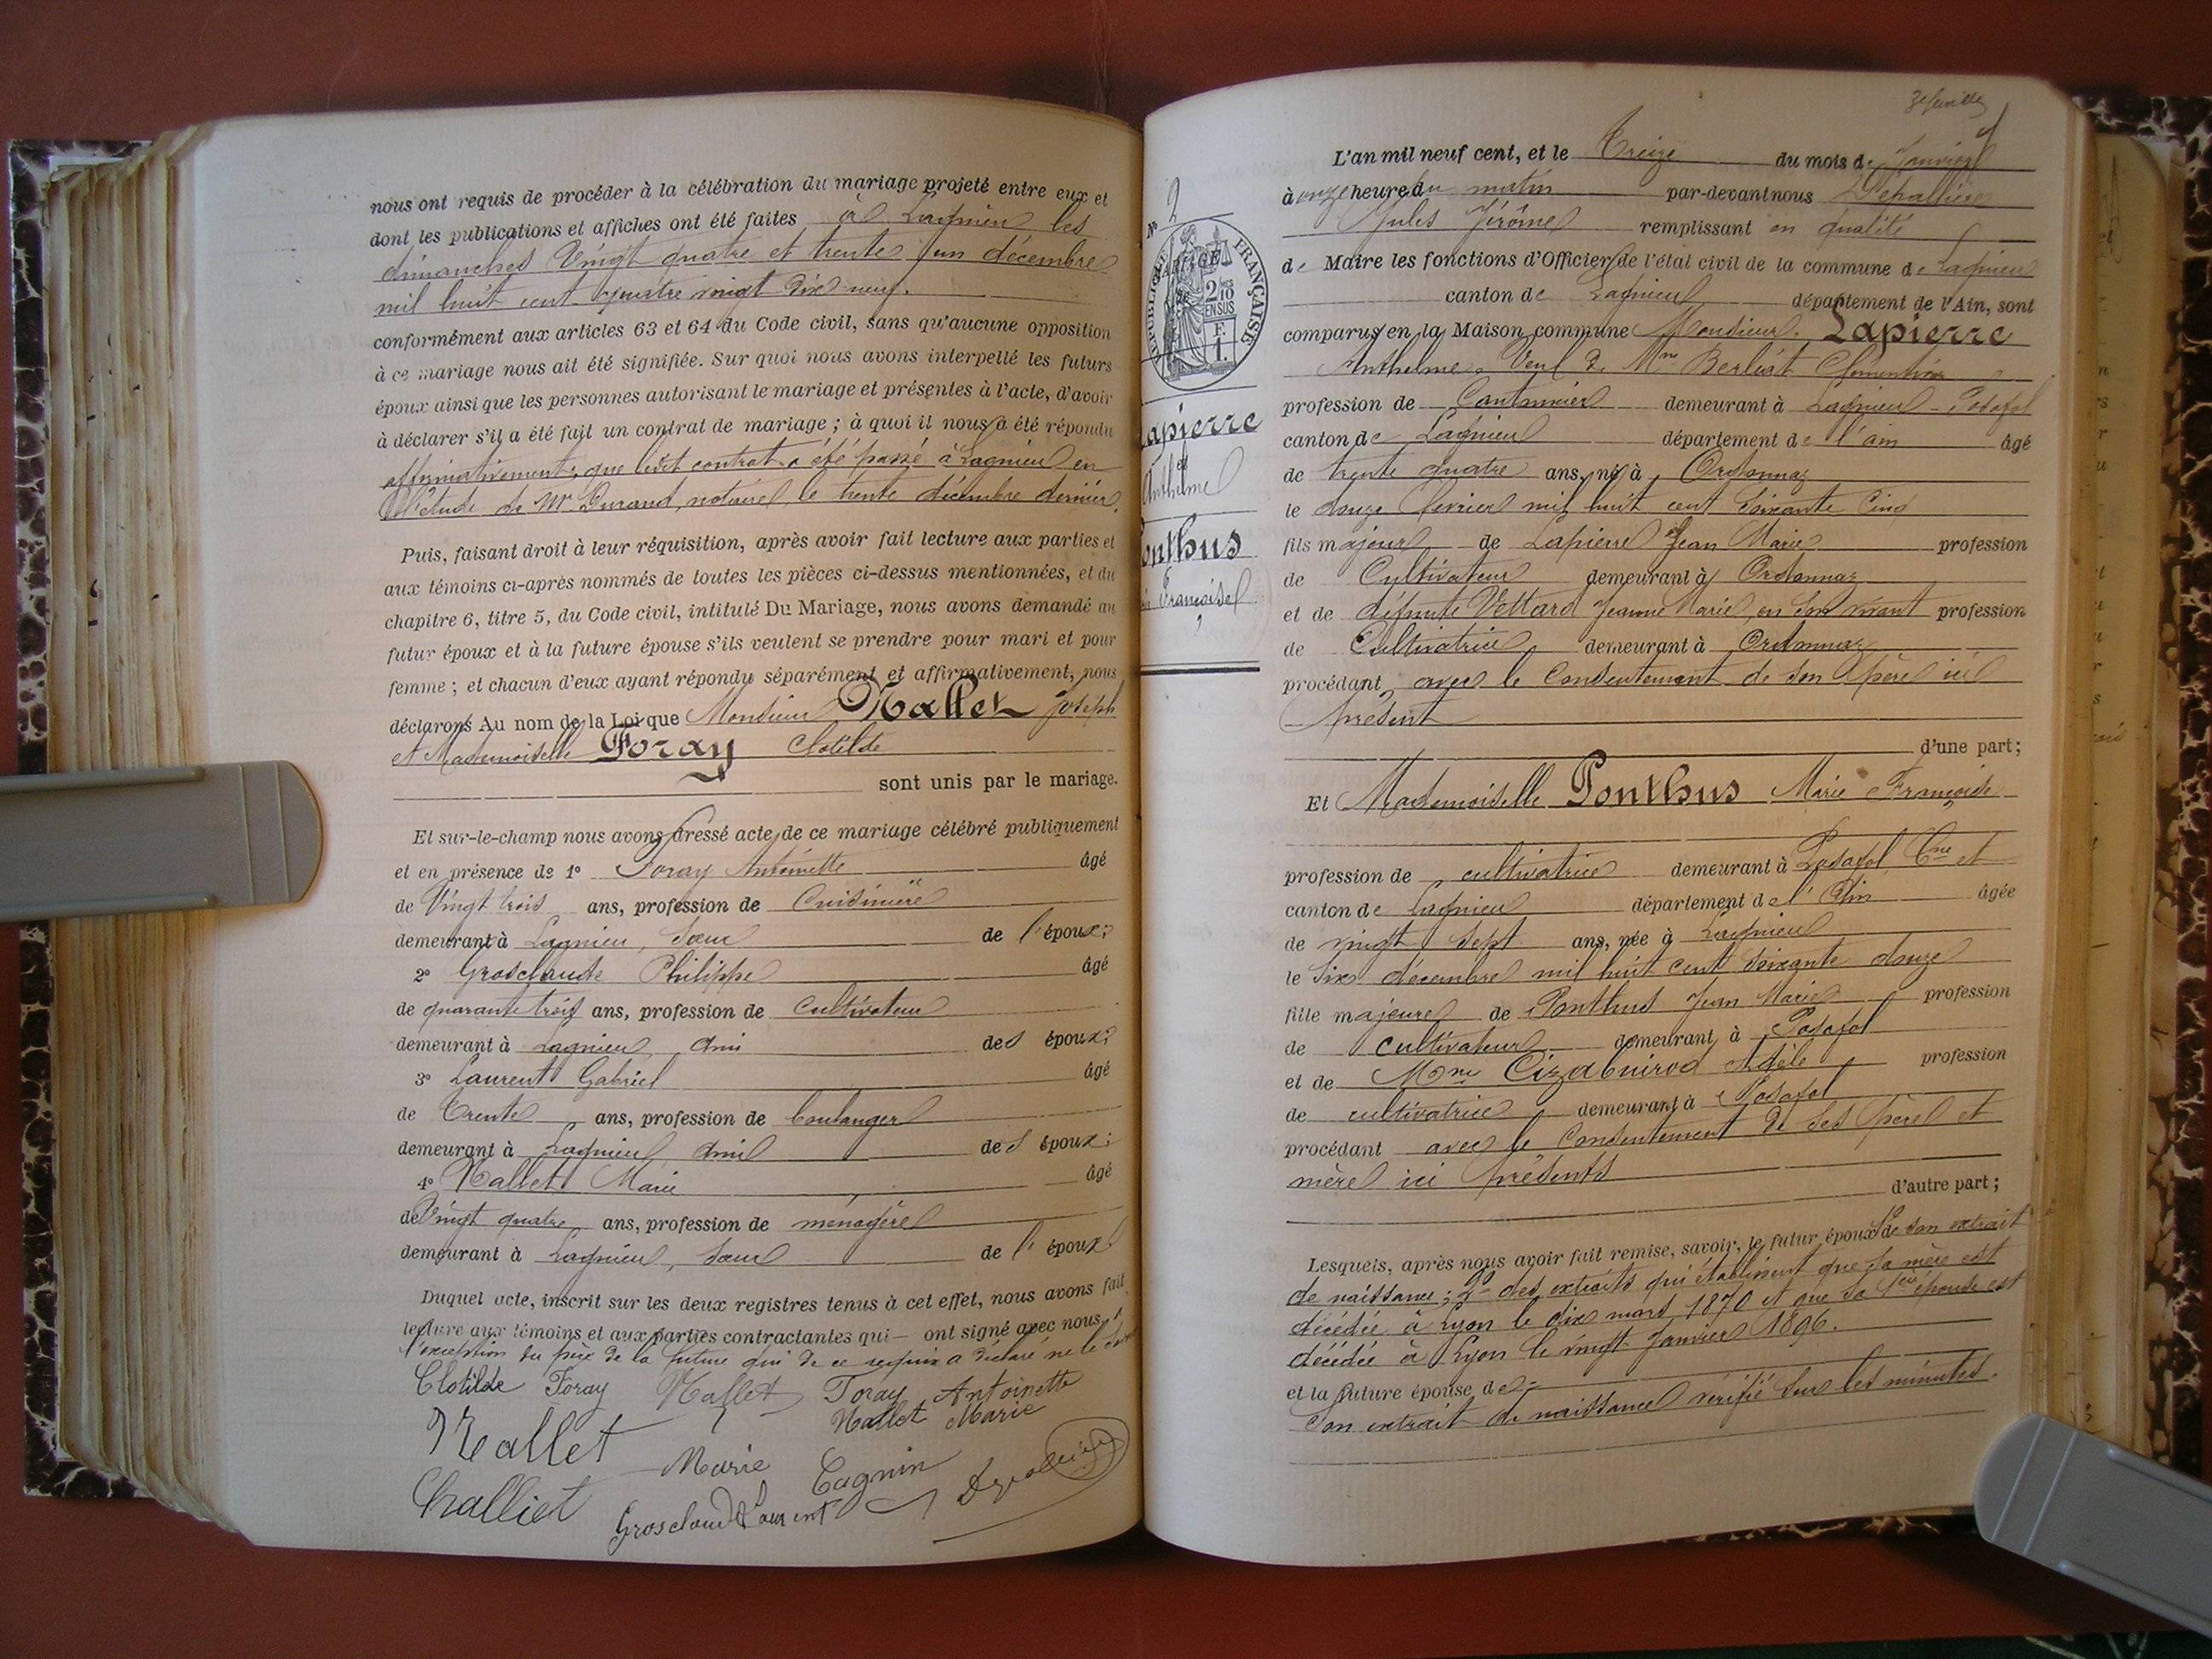 nous ont requis de procéder à la célébration du mariage projeté entre eux et
dont les publications et affiches ont été faites à Lagnieu les
dimanches Vingt quatre et trente un décembre
mil huit cent quatre vingt dix neuf.
conformément aux articles 63 et 64 du Code civil, sans qu'aucune opposition
à ce mariage nous ait été signifiée. Sur quoi nous avons interpellé les futurs
époux ainsi que les personnes autorisant le mariage et présentes à l'acte, d'avoir
à déclarer s'il a été fait un contrat de mariage ; à quoi il nous a été répondu
affirmativement, que ledit contrat a été passé à Lagnieu en
l'étude de Mr Durand, notaire, le trente décembre dernier.
Puis, faisant droit à leur réquisition, après avoir fait lecture aux parties et
aux témoins ci-après nommés de toutes les pièces ci-dessus mentionnées, et du
chapitre 6, titre 5, du Code civil, intitulé Du Mariage, nous avons demandé au
futur époux et à la future épouse s'ils veulent se prendre pour mari et pour
femme ; et chacun d'eux ayant répondu séparément et affirmativement, nous
déclarons Au nom de la Loi que Monsieur Nallet Joseph
et Mademoiselle Foray Clotilde
sont unis par le mariage.
Et sur-le-champ nous avons dressé acte de ce mariage célébré publiquement
et en présence de 1° Foray Antoinette âgé
de Vingt trois ans, profession de Cuisinière
demeurant à Lagnieu, sœur de l'époux;
2° Grosclaude Philippe âgé
de quarante trois ans, profession de Cultivateur
demeurant à Lagnieu, ami des époux;
3° Laurent Gabriel âgé
de Trente ans, profession de boulanger
demeurant à Lagnieu, ami des époux;
4° Nallet Marie âgé
de Vingt quatre ans, profession de ménagère
demeurant à Lagnieu, sœur de l'époux
Duquel acte, inscrit sur les deux registres tenus à cet effet, nous avons fait
lecture aux témoins et aux parties contractantes qui — ont signé avec nous, à
l'exception du père de la future qui de ce requis a déclaré ne le
Clotilde Foray Nallet Foray Antoinette
Nallet Nallet Marie
Marie Cagnin
Challiet Grosclaude Laurent
3e feuille
L'an mil neuf cent, et le Treize du mois de Janvier
à onze heure du matin par-devant nous Dehallière
Jules Jérôme remplissant en qualité
de Maire les fonctions d'Officier de l'état civil de la commune de Lagnieu
canton de Lagnieu département de l'Ain, sont
comparus en la Maison commune Monsieur Lapierre
Anthelme, Veuf de Mme Berliat Clémentine
profession de Cantonnier demeurant à Lagnieu - Posafol
canton de Lagnieu département de l'ain âgé
de trente quatre ans, né à Ordonnaz
le douze février mil huit cent soixante cinq
fils majeur de Lapierre Jean Marie profession
de Cultivateur demeurant à Ordonnaz
et de défunte Vettard Jeanne Marie, en son vivant profession
de Cultivatrice demeurant à Ordonnaz
procédant avec le Consentement de son père ici
présent
d'une part;
Et Mademoiselle Ponthus Marie Françoise
profession de cultivatrice demeurant à Posafol Cne et
canton de Lagnieu département de l'Ain âgée
de vingt sept ans, née à Lagnieu
le six décembre mil huit cent soixante douze
fille majeure de Ponthus Jean Marie profession
de cultivateur demeurant à Posafol
et de Mme Cizabuirod Adèle profession
de cultivatrice demeurant à Posafol
procédant avec le Consentement de ses père et
mère ici présents
d'autre part;
Lesquels, après nous avoir fait remise, savoir, le futur époux 1° de son extrait
de naissance ; 2° des extraits qui établissent que sa mère est
décédée à Lyon le dix mars 1870 et que sa 1ère épouse est
décédée à Lyon le vingt Janvier 1896.
et la future épouse de
son extrait de naissance vérifié sur les minutes.
N° 2
RÉPUBLIQUE FRANÇAISE
2/10 EN SUS
F.
1.
apierre
Anthelme
et
onthus
Françoise